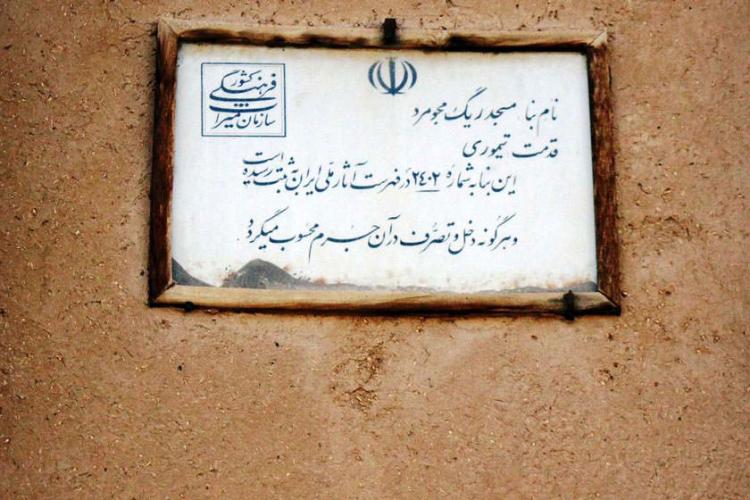 سازمان میراث
فرهنگی کشور
نام بنا مسجد ریگ مجومرد
قدمت تیموری
این بنا به شمارهٔ ۲۴۰۲ در فهرست آثار ملی ایران به ثبت رسیده است
و هرگونه دخل و تصرف در آن جرم محسوب میگردد